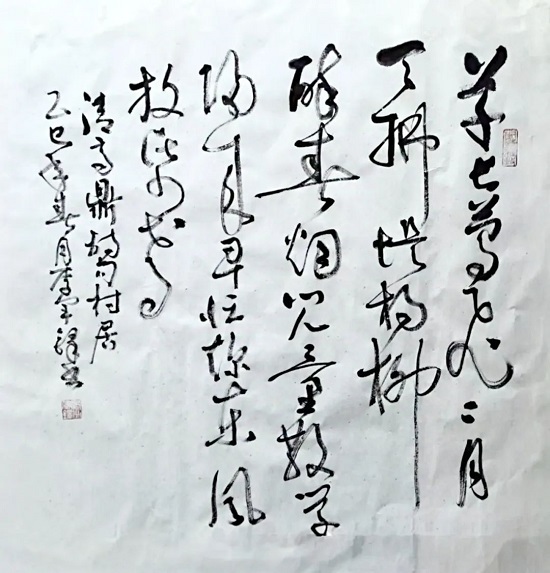 草长莺飞二月
天拂堤杨柳
醉春烟儿童散学
归来早忙趁东风
放纸鸢
清高鼎诗句村居
乙巳年春月李书